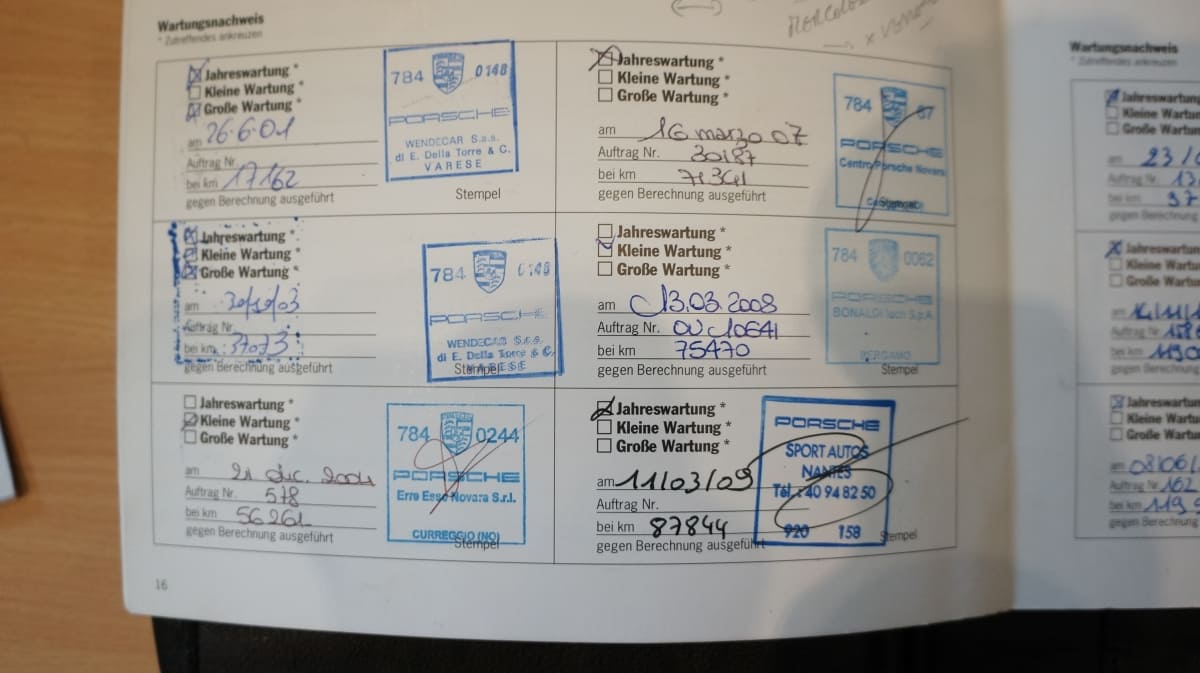 Wartungsnachweis
* Zutreffendes ankreuzen
Jahreswartung *
Kleine Wartung *
Große Wartung *
am 26.6.01
Auftrag Nr.
bei km 17162
gegen Berechnung ausgeführt
784 0148
PORSCHE
WENDECAR S.a.s.
di E. Della Torre & C.
VARESE
Stempel
Jahreswartung *
Kleine Wartung *
Große Wartung *
am
Auftrag Nr.
bei km 37073
gegen Berechnung ausgeführt
784 0148
PORSCHE
WENDECAR S.a.s.
di E. Della Torre & C.
VARESE
Stempel
Jahreswartung *
Kleine Wartung *
Große Wartung *
am 21 dic. 2004
Auftrag Nr. 578
bei km 56261
gegen Berechnung ausgeführt
784 0244
PORSCHE
Erre Esse Novara S.r.l.
CURREGGIO (NO)
Stempel
16
Jahreswartung *
Kleine Wartung *
Große Wartung *
am 16 marzo 07
Auftrag Nr. 30187
bei km 71341
gegen Berechnung ausgeführt
784 67
PORSCHE
Centro Porsche Novara
Stempel
Jahreswartung *
Kleine Wartung *
Große Wartung *
am 13.03.2008
Auftrag Nr. OV 10641
bei km 75470
gegen Berechnung ausgeführt
784 0062
PORSCHE
BONALDI Tech S.p.A.
BERGAMO
Stempel
Jahreswartung *
Kleine Wartung *
Große Wartung *
am 11/03/09
Auftrag Nr.
bei km 87844
gegen Berechnung ausgeführt
PORSCHE
SPORT AUTOS
NANTES
Tél. : 40 94 82 50
920 158
Stempel
Wartungsnachweis
* Zutreffendes ankreuzen
Jahreswartung
Kleine Wartun
Große Wartun
am 23/
Auftrag Nr.
bei km
gegen Berechnung
Jahreswartun
Kleine Wartun
Große Wartun
am
Auftrag Nr.
bei km
gegen Berechnung
Jahreswartun
Kleine Wartun
Große Wartun
am
Auftrag Nr. 162
bei km
gegen Berechnung